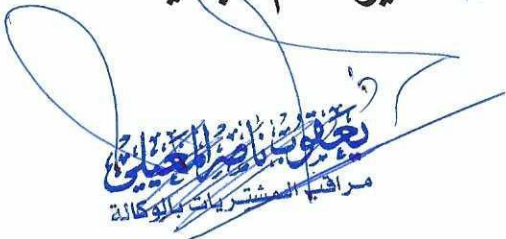 يعقوب ناصر المعيلي
مراقب المشتريات بالوكالة